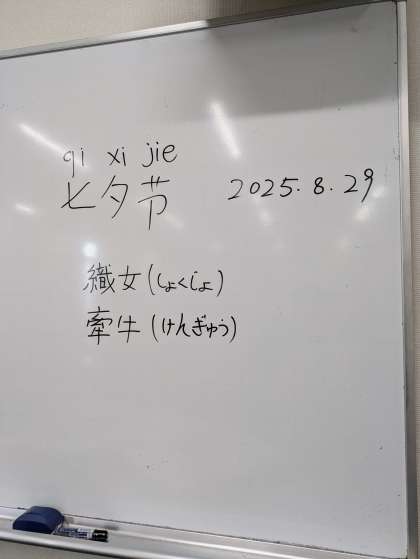 qi xi jie
七夕节 2025.8.29
織女(しょくじょ)
牽牛(けんぎゅう)